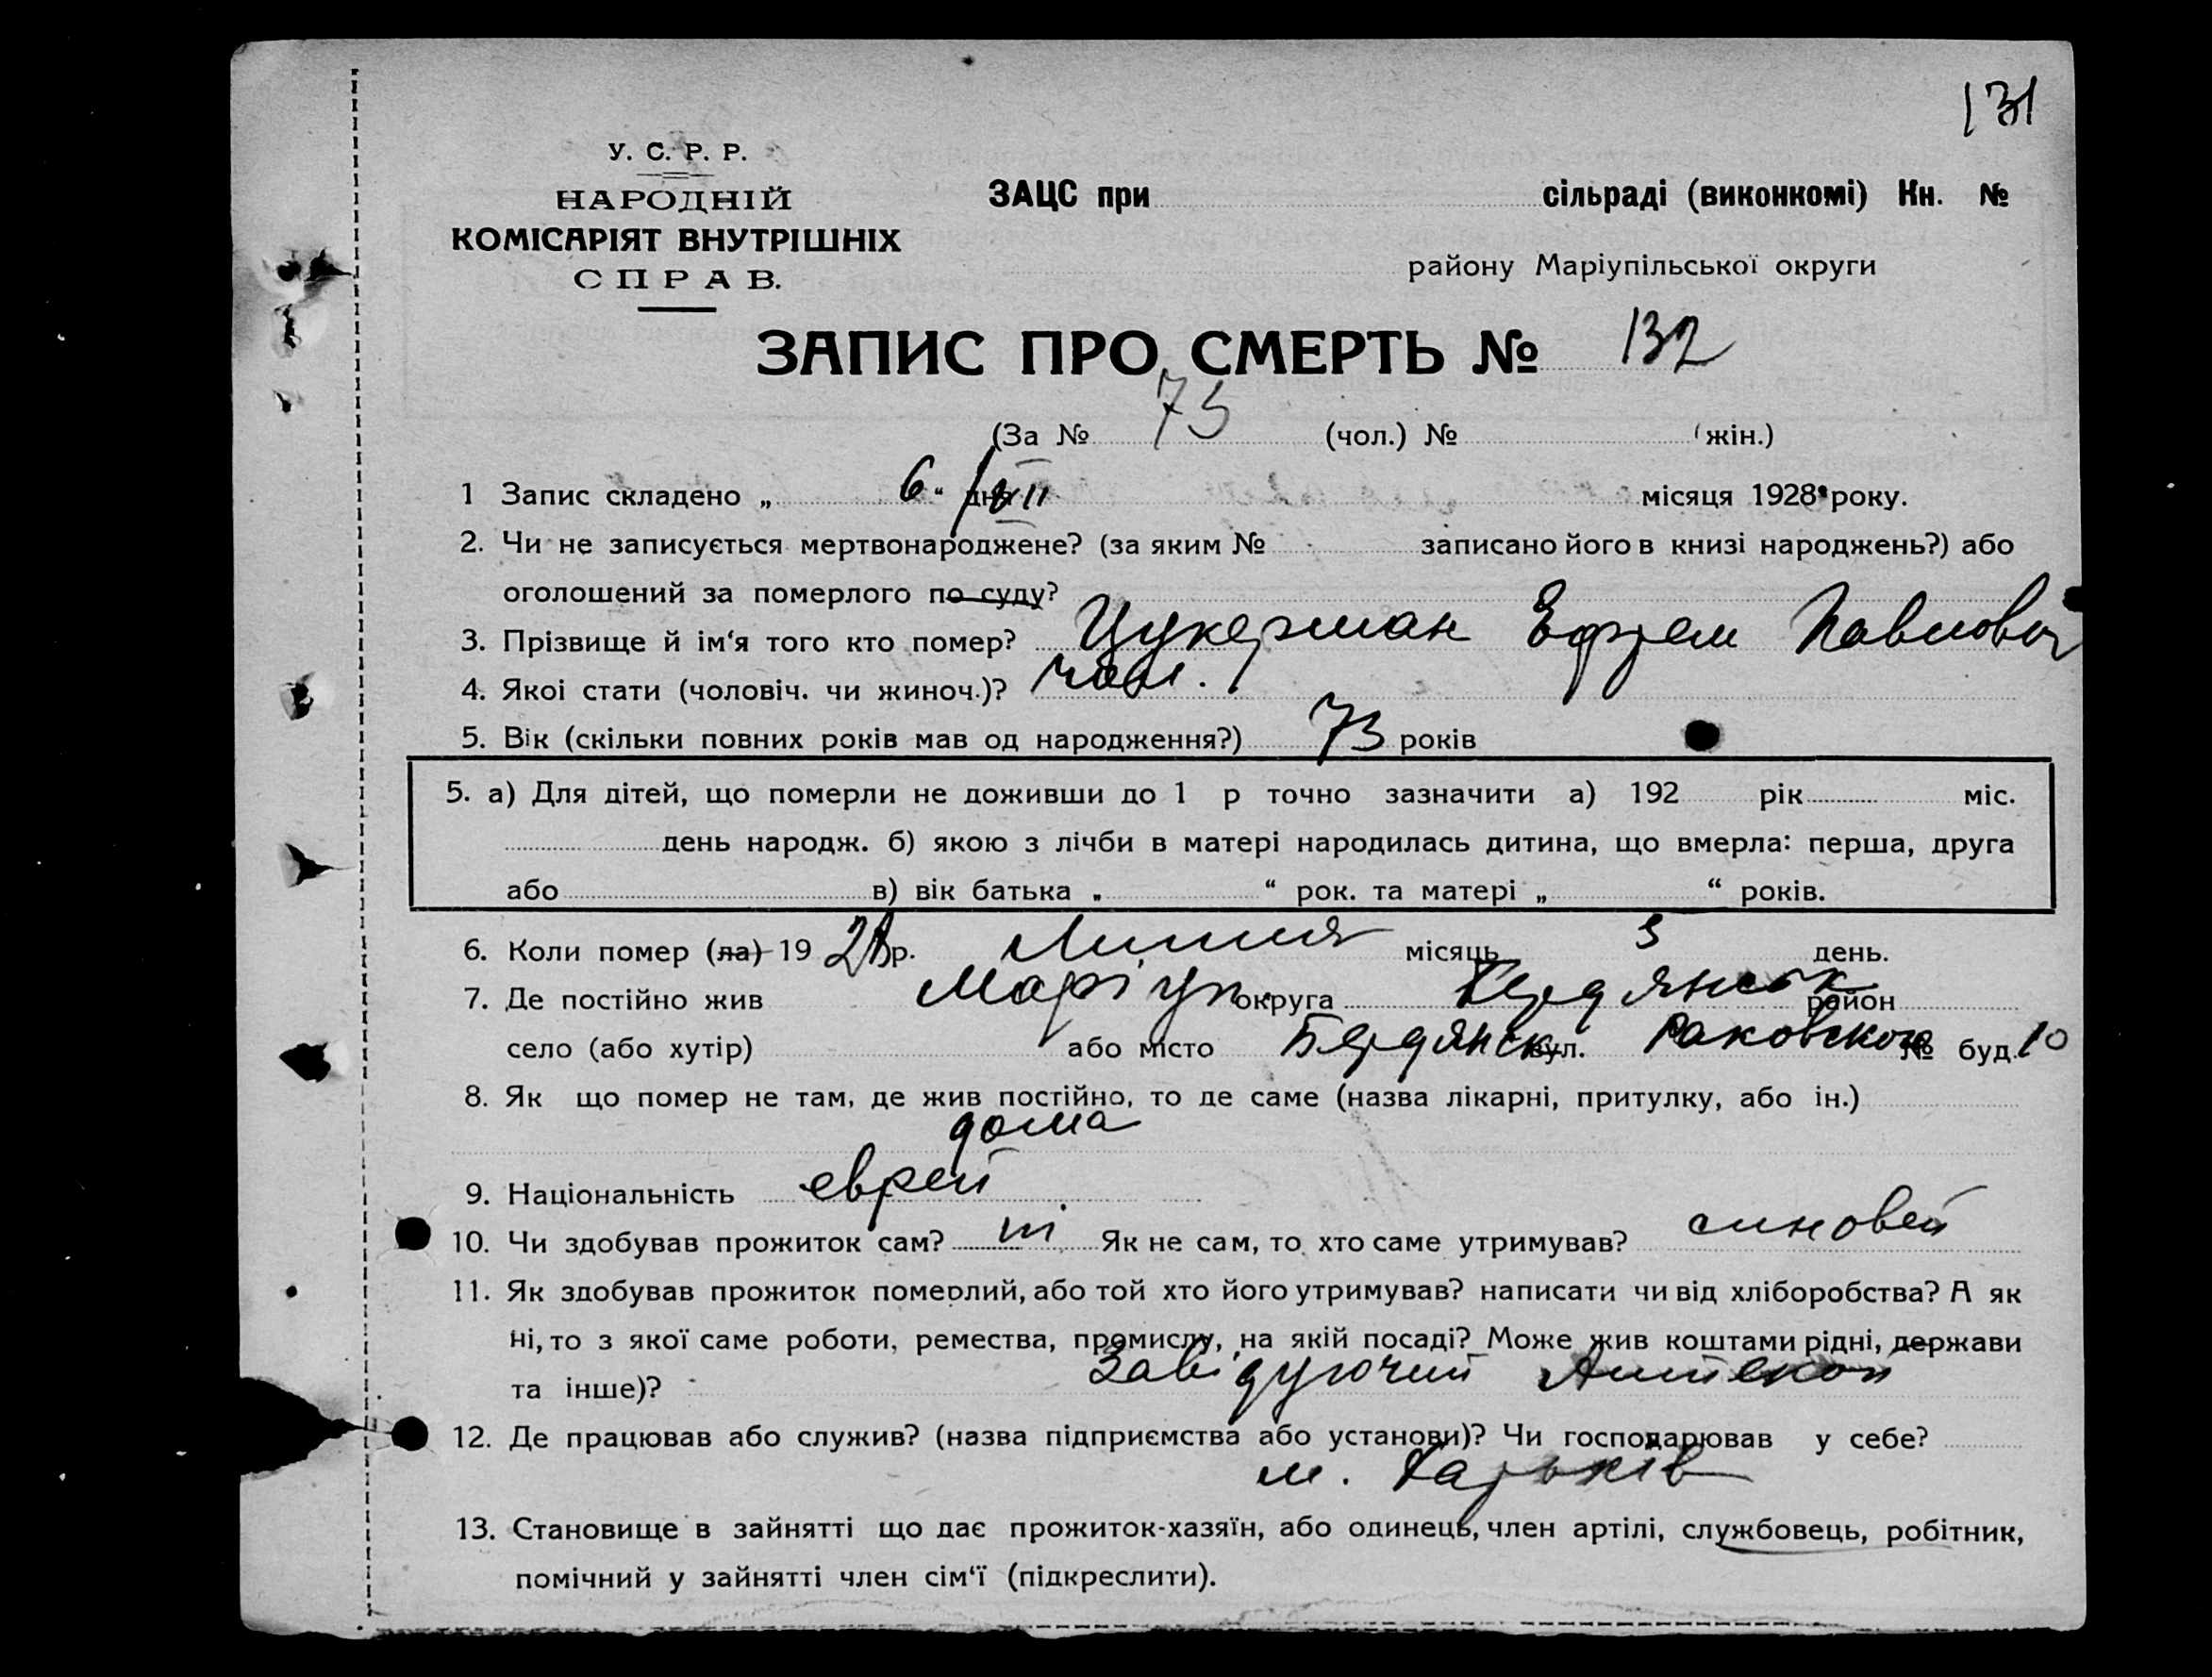 131
У. С. Р. Р.
НАРОДНІЙ
КОМІСАРІЯТ ВНУТРІШНІХ
СПРАВ.
ЗАЦС при сільраді (виконкомі) Кн. №
району Маріупільської округи
ЗАПИС ПРО СМЕРТЬ № 132
(За № 73 (чол.) № (жін.)
1 Запис складено „ 6 “ дня /VII місяця 1928 року.
2. Чи не записується мертвонароджене? (за яким № записано його в книзі народжень?) або
оголошений за померлого по суду?
3. Прізвище й ім‘я того кто помер? Цукерман Ефрем Павлович
4. Якоі стати (чоловіч. чи жиноч.)? чолов.
5. Вік (скільки повних років мав од народження?) 73 років
5. а) Для дітей, що померли не доживши до 1 р точно зазначити а) 192 рік міс.
день народж. б) якою з лічби в матері народилась дитина, що вмерла: перша, друга
або в) вік батька „ “ рок. та матері „ “ років.
6. Коли помер (ла) 1928 р. Липня місяць 3 день.
7. Де постійно жив Маріуп. округа Бердянськ район
село (або хутір) або місто Бердянськ вул. Раковского № буд. 10
8. Як що помер не там, де жив постійно, то де саме (назва лікарні, притулку, або ін.)
дома
9. Національність еврей
10. Чи здобував прожиток сам? ні Як не сам, то хто саме утримував? синовей
11. Як здобував прожиток померлий, або той хто його утримував? написати чи від хліборобства? А як
ні, то з якої саме роботи, ремества, промислу, на якій посаді? Може жив коштами рідні, держави
та інше)? Завідуючий Аптекой
12. Де працював або служив? (назва підприємства або установи)? Чи господарював у себе?
м. Харьків
13. Становище в зайнятті що дає прожиток-хазяїн, або одинець, член артілі, службовець, робітник,
помічний у зайнятті член сім‘ї (підкреслити).